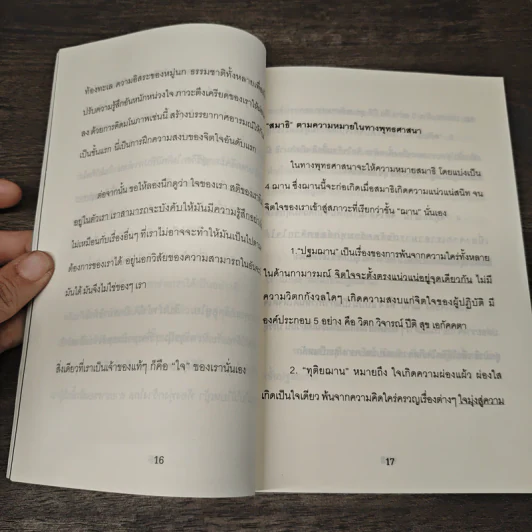 ท้องทะเล ความอิสระของหมู่นก ธรรมชาติทั้งหลายเพื่อ
ปรับความรู้สึกอันหนักหน่วงใจ ภาวะตึงเครียดของเราให้
ลง ด้วยการคิดมโนภาพเช่นนี้ สร้างบรรยากาศอารมณ์
เป็นขั้นแรก นี่เป็นการฝึกความสงบของจิตใจอันดับแรก
ต่อจากนั้น ขอให้ลองนึกดูว่า ใจของเรา สติของเรา
อยู่ในตัวเรา เราสามารถจะบังคับให้มันมีความรู้สึกอย่าง
ไม่เหมือนกับเรื่องอื่นๆ ที่เราไม่อาจจะทำให้มันเป็นไปตาม
ต้องการของเราได้ อยู่นอกวิสัยของความสามารถในอัน
มันได้ มันจึงไม่ใช่ของๆ เรา
สิ่งเดียวที่เราเป็นเจ้าของแท้ๆ ก็คือ "ใจ" ของเรานั่นเอง
16
"สมาธิ" ตามความหมายในทางพุทธศาสนา
ในทางพุทธศาสนาจะให้ความหมายสมาธิ โดยแบ่งเป็น
๔ ฌาน ซึ่งฌานนี้จะก่อเกิดเมื่อสมาธิเกิดความแน่วแน่สนิท จน
จิตใจของเราเข้าสู่สภาวะที่เรียกว่าขั้น "ฌาน" นั่นเอง
1. "ปฐมฌาน" เป็นเรื่องของการพ้นจากความใคร่ทั้งหลาย
ในด้านกามารมณ์ จิตใจจะตั้งตรงแน่วแน่อยู่จุดเดียวกัน ไม่มี
ความวิตกกังวลใดๆ เกิดความสงบแก่จิตใจของผู้ปฏิบัติ มี
องค์ประกอบ 5 อย่าง คือ วิตก วิจารณ์ ปีติ สุข เอกัคคตา
2. "ทุติยฌาน" หมายถึง ใจเกิดความผ่องแผ้ว ผ่องใส
เกิดเป็นใจเดียว พ้นจากความคิดใคร่ครวญเรื่องต่างๆ ใจมุ่งสู่ความ
17